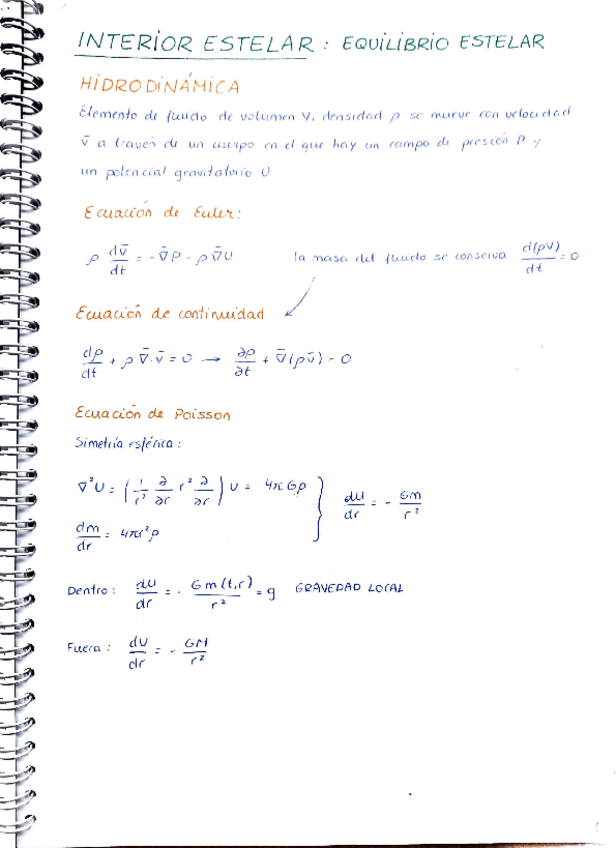 INTERIOR ESTELAR : EQUILIBRIO ESTELAR
HIDRODINÁMICA
Elemento de fluido de volumen V, densidad ρ se mueve con velocidad
v̄ a través de un cuerpo en el que hay un campo de presión P y
un potencial gravitatorio U
Ecuación de Euler:
ρ dv̄/dt = -∇̄P - ρ∇̄U la masa del fluido se conserva d(ρV)/dt = 0
Ecuación de continuidad
dρ/dt + ρ ∇̄·v̄ = 0 → ∂ρ/∂t + ∇̄(ρv̄) = 0
Ecuación de Poisson
Simetría esférica:
∇²U = (1/r² ∂/∂r r² ∂/∂r) U = 4πGρ } dU/dr = - Gm/r²
dm/dr = 4πr²ρ
Dentro: dU/dr = - Gm(t,r)/r² = g GRAVEDAD LOCAL
Fuera: dU/dr = - GM/r²